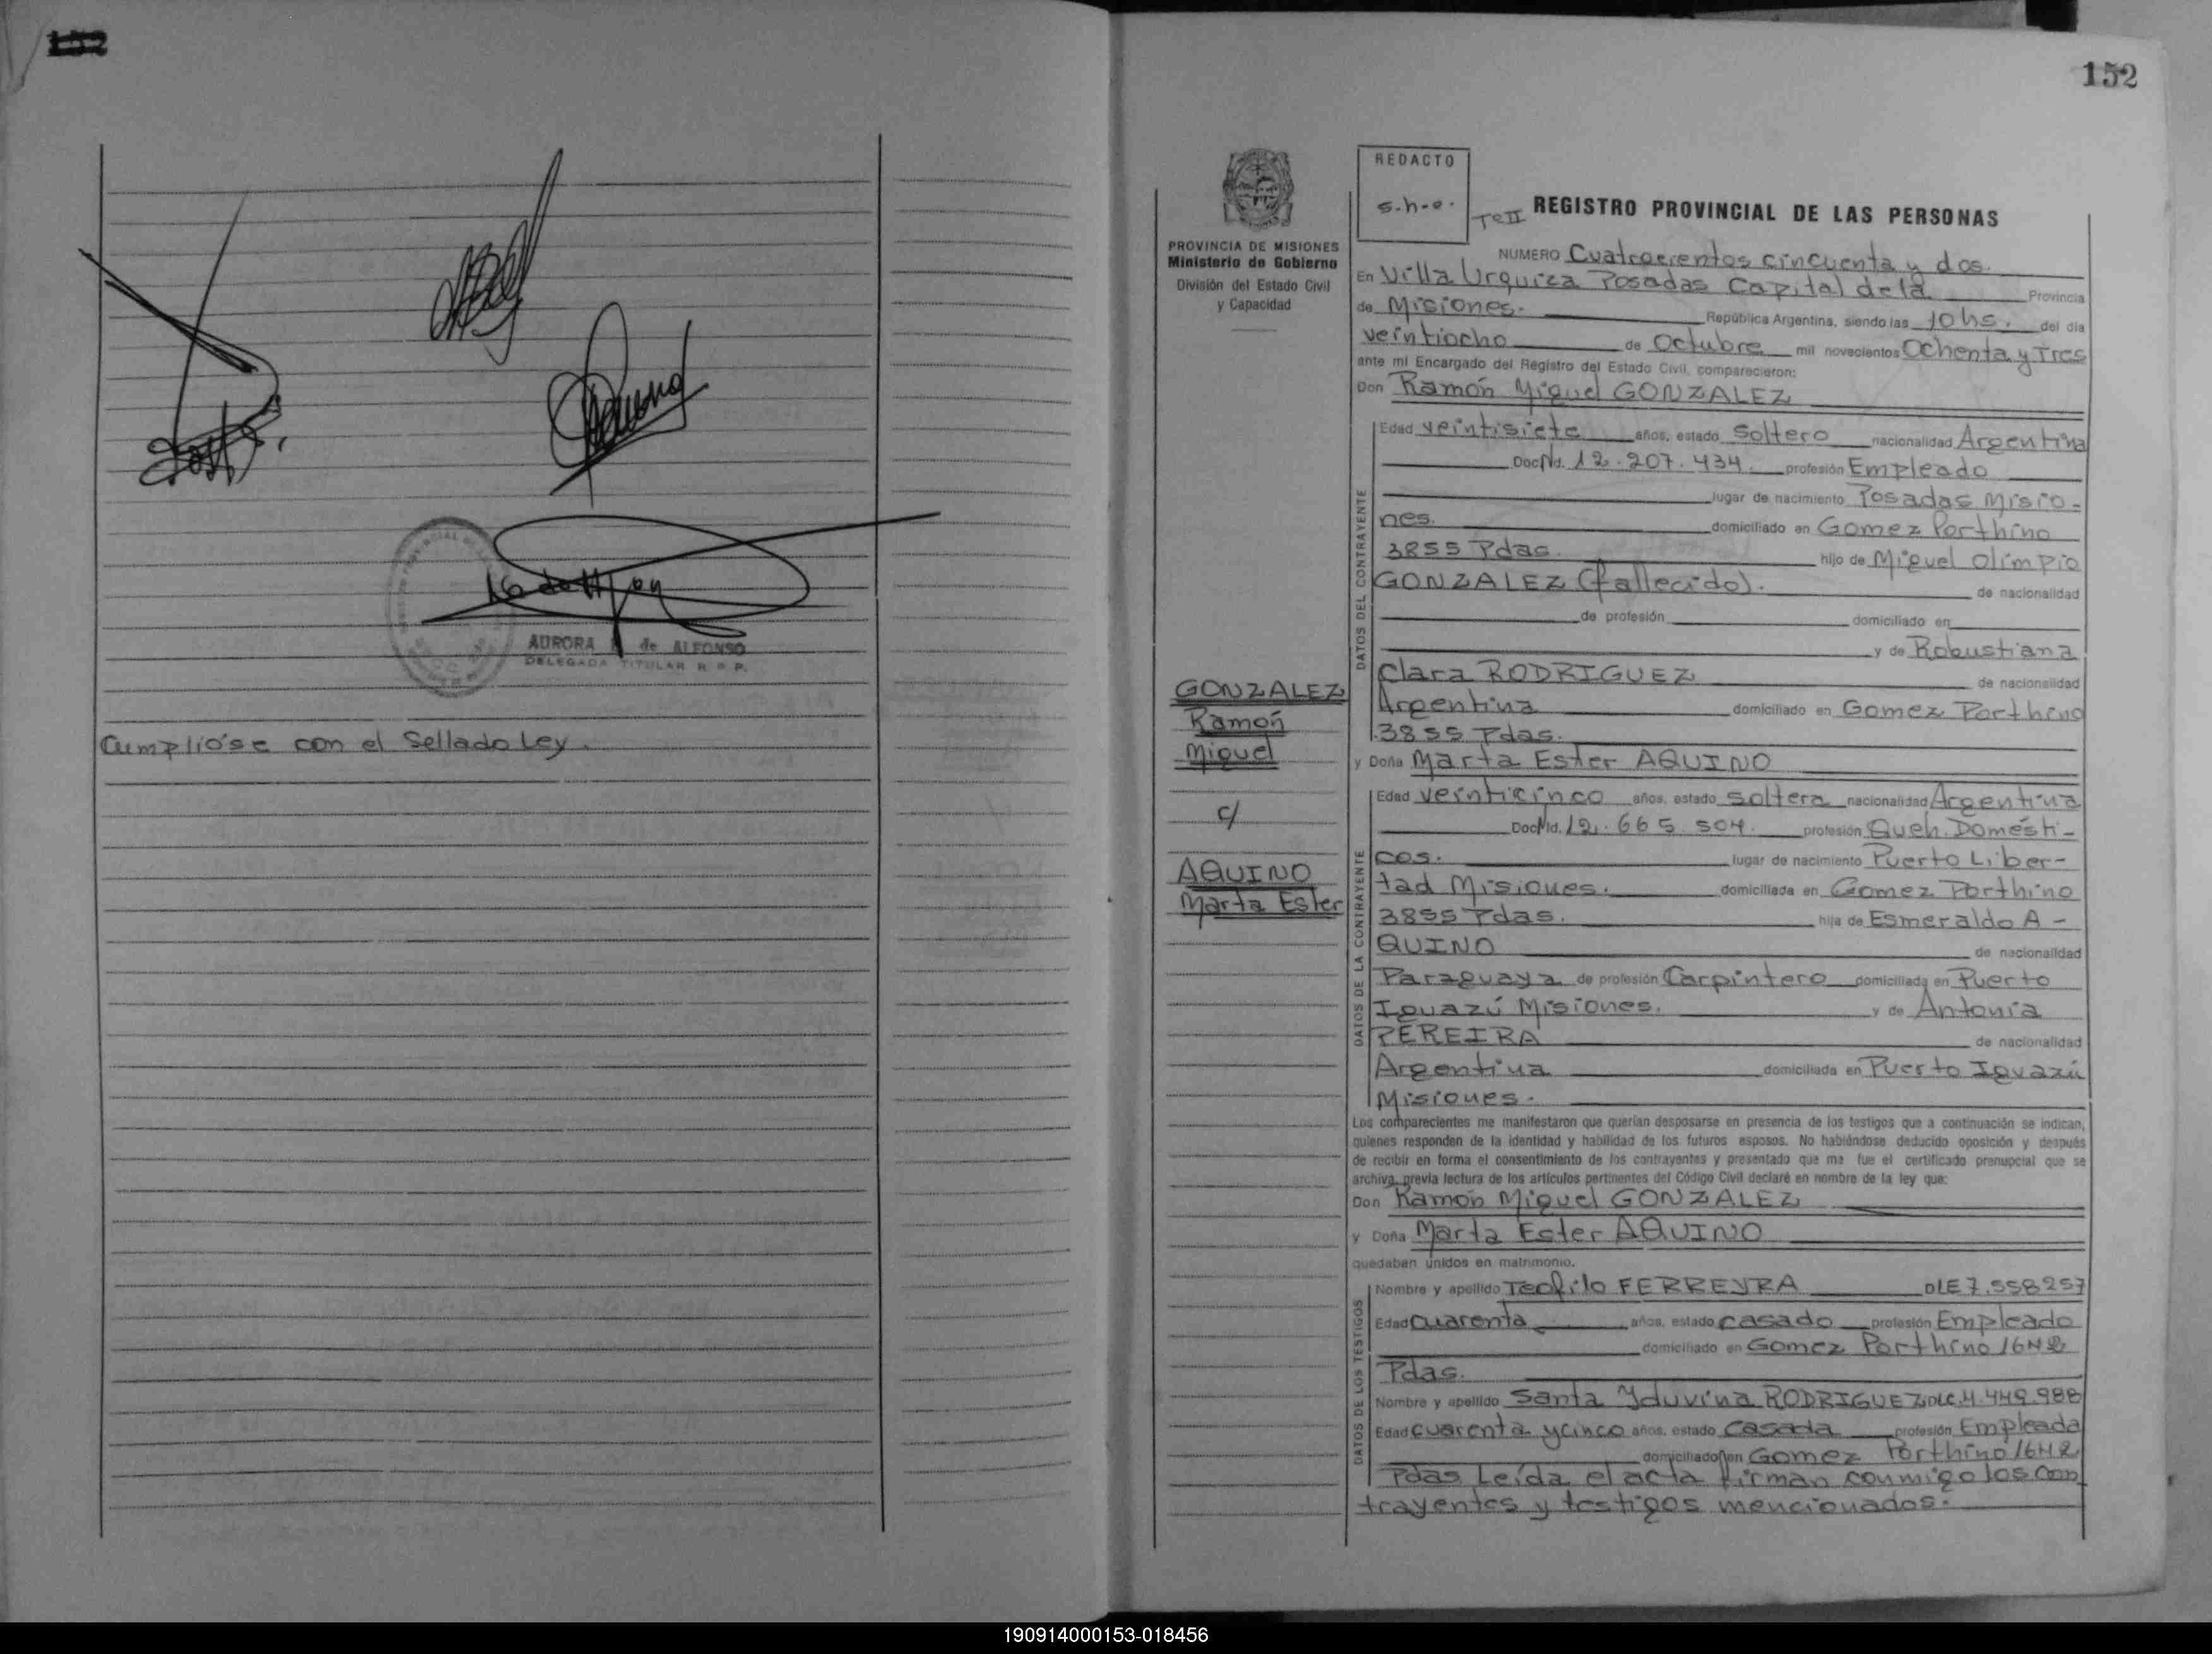 152
AURORA de ALFONSO
DELEGADA TITULAR R. P. P.
Cumplióse con el Sellado Ley.
152
REDACTO
s.h.o.
PROVINCIA DE MISIONES
Ministerio de Gobierno
División del Estado Civil
y Capacidad
GONZALEZ
Ramón
Miguel
c/
AQUINO
Marta Ester
Tº II REGISTRO PROVINCIAL DE LAS PERSONAS
NUMERO Cuatrocientos cincuenta y dos.
En Villa Urquiza Posadas Capital de la Provincia
de Misiones. República Argentina, siendo las 10 hs. del día
veintiocho de Octubre mil novecientos Ochenta y Tres
ante mi Encargado del Registro del Estado Civil, comparecieron:
Don Ramón Miguel GONZALEZ
DATOS DEL CONTRAYENTE
Edad veintisiete años, estado Soltero nacionalidad Argentina
Doc. Nd. 12.207.434. profesión Empleado
lugar de nacimiento Posadas Misio-
nes. domiciliado en Gomez Porthino
3855 Pdas. hijo de Miguel Olimpio
GONZALEZ (fallecido). de nacionalidad
de profesión domiciliado en
y de Robustiana
Clara RODRIGUEZ de nacionalidad
Argentina domiciliado en Gomez Porthino
3855 Pdas.
y Doña Marta Ester AQUINO
DATOS DE LA CONTRAYENTE
Edad veinticinco años, estado soltera nacionalidad Argentina
Doc. Nd. 12.665.504. profesión Queh. Domésti-
cos. lugar de nacimiento Puerto Liber-
tad Misiones. domiciliada en Gomez Porthino
3855 Pdas. hija de Esmeraldo A-
QUINO de nacionalidad
Paraguaya de profesión Carpintero domiciliada en Puerto
Iguazú Misiones. y de Antonia
PEREIRA de nacionalidad
Argentina domiciliada en Puerto Iguazú
Misiones.
Los comparecientes me manifestaron que querían desposarse en presencia de los testigos que a continuación se indican,
quienes responden de la identidad y habilidad de los futuros esposos. No habiéndose deducido oposición y después
de recibir en forma el consentimiento de los contrayentes y presentado que me fue el certificado prenupcial que se
archiva, previa lectura de los artículos pertinentes del Código Civil declaré en nombre de la ley que:
Don Ramón Miguel GONZALEZ
y Doña Marta Ester AQUINO
quedaban unidos en matrimonio.
DATOS DE LOS TESTIGOS
Nombre y apellido Teofilo FERREYRA DLE 7.558257
Edad cuarenta años, estado casado profesión Empleado
domiciliado en Gomez Porthino 1642
Pdas.
Nombre y apellido Santa Yduvina RODRIGUEZ DLC.4.449.988
Edad cuarenta y cinco años, estado Casada profesión Empleada
domiciliado en Gomez Porthino 1642
Pdas Leída el acta firman conmigo los con
trayentes y testigos mencionados.
190914000153-018456